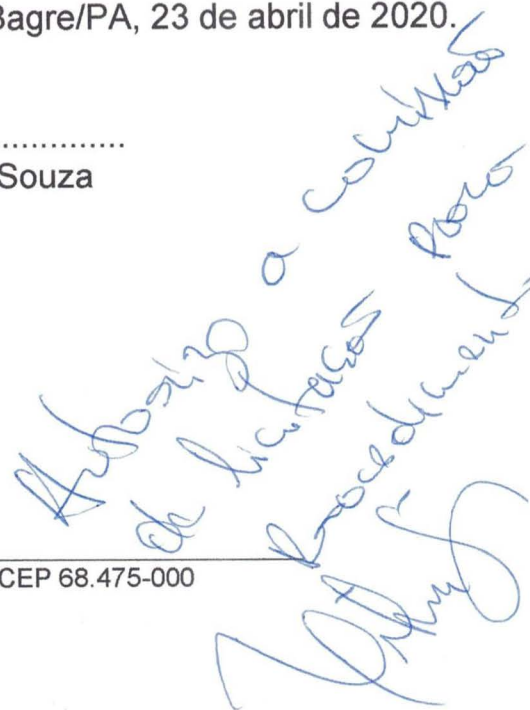 Bagre/PA, 23 de abril de 2020.
.............
Souza
Autorizo a comissão
de licitação para
procediment
CEP 68.475-000